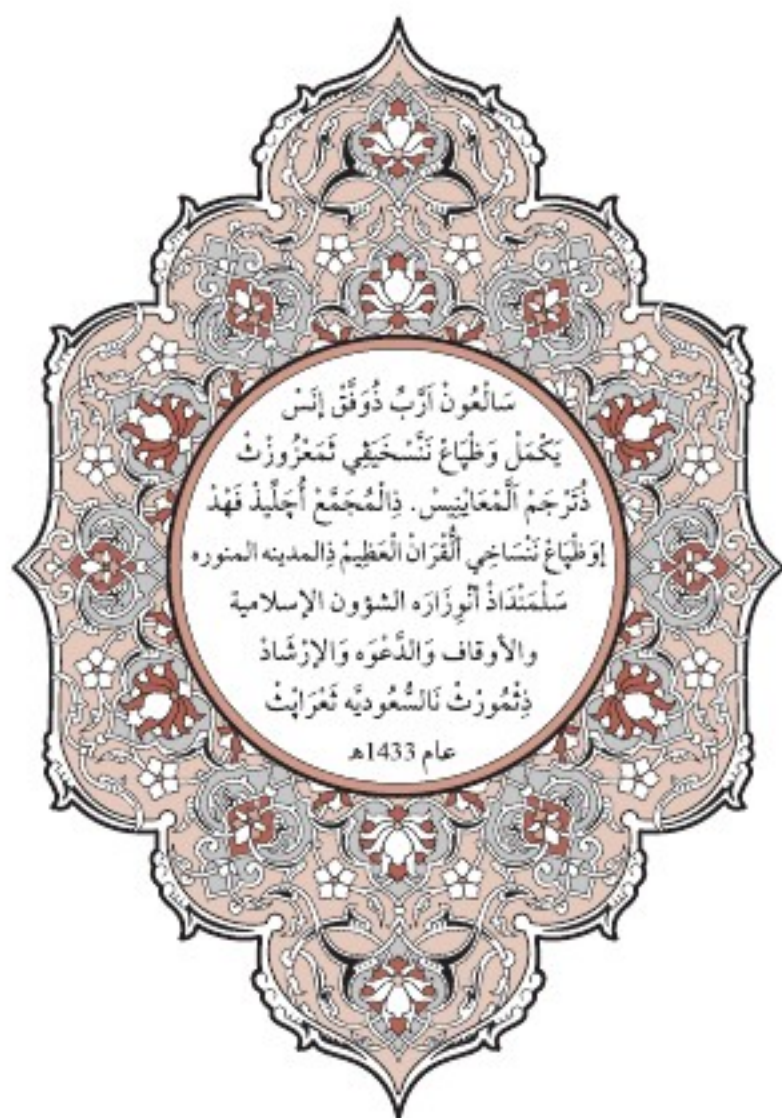 سَالْعُونْ اَرَّبِّ ذُوَفَّقْ إِنَسْ
يَكْمَلْ وَطْبَاعْ نَنَّسْخَيَڨِي ثَمَعْزُوزْثْ
ذُتَرْجَمْ اَلْمَعَانِيسْ. ذِالْمُجَمَّعْ أُجَلِّيذْ فَهْدْ
إِوَطْبَاعْ نَنْسَاخِي اَلْقُرَانْ الْعَظِيمْ ذِالمدينه المنوره
سَلْمَنْدَاذْ اَنْوِزَارَه الشؤون الإسلامية
والأوقاف وَالدَّعْوَه وَالإِرْشَادْ
ذِثْمُورْثْ نَالسُّعُوديَّه ثَعْرَابْثْ
عام 1433هـ